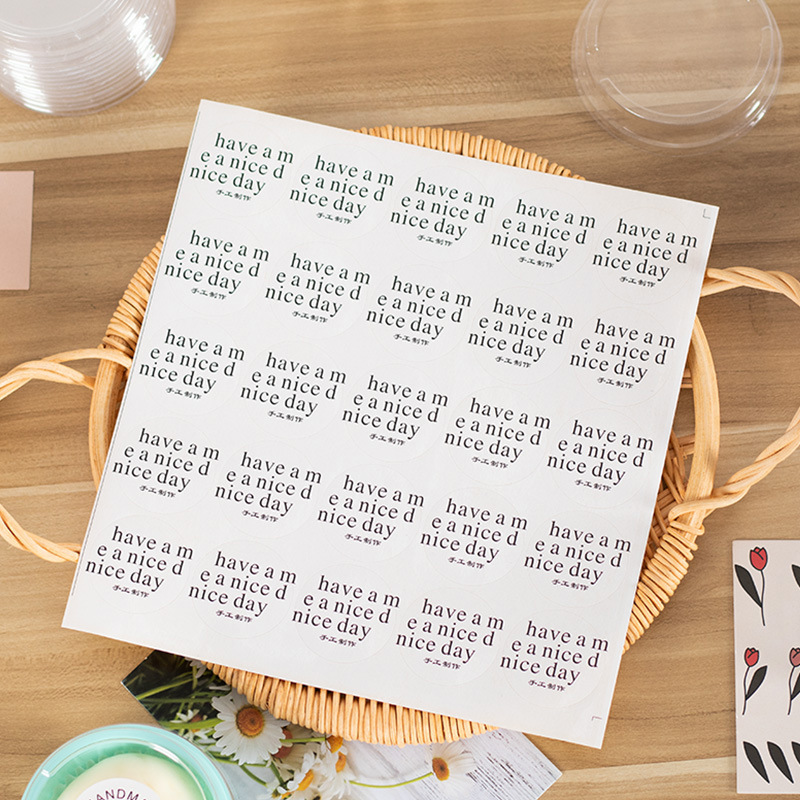 have a m
e a nice d
nice day
手工制作
have a m
e a nice d
nice day
手工制作
have a m
e a nice d
nice day
手工制作
have a m
e a nice d
nice day
手工制作
have a m
e a nice d
nice day
手工制作
have a m
e a nice d
nice day
手工制作
have a m
e a nice d
nice day
手工制作
have a m
e a nice d
nice day
手工制作
have a m
e a nice d
nice day
手工制作
have a m
e a nice d
nice day
手工制作
have a m
e a nice d
nice day
手工制作
have a m
e a nice d
nice day
手工制作
have a m
e a nice d
nice day
手工制作
have a m
e a nice d
nice day
手工制作
have a m
e a nice d
nice day
手工制作
have a m
e a nice d
nice day
手工制作
have a m
e a nice d
nice day
手工制作
have a m
e a nice d
nice day
手工制作
have a m
e a nice d
nice day
手工制作
have a m
e a nice d
nice day
手工制作
have a m
e a nice d
nice day
手工制作
have a m
e a nice d
nice day
手工制作
have a m
e a nice d
nice day
手工制作
have a m
e a nice d
nice day
手工制作
have a m
e a nice d
nice day
手工制作